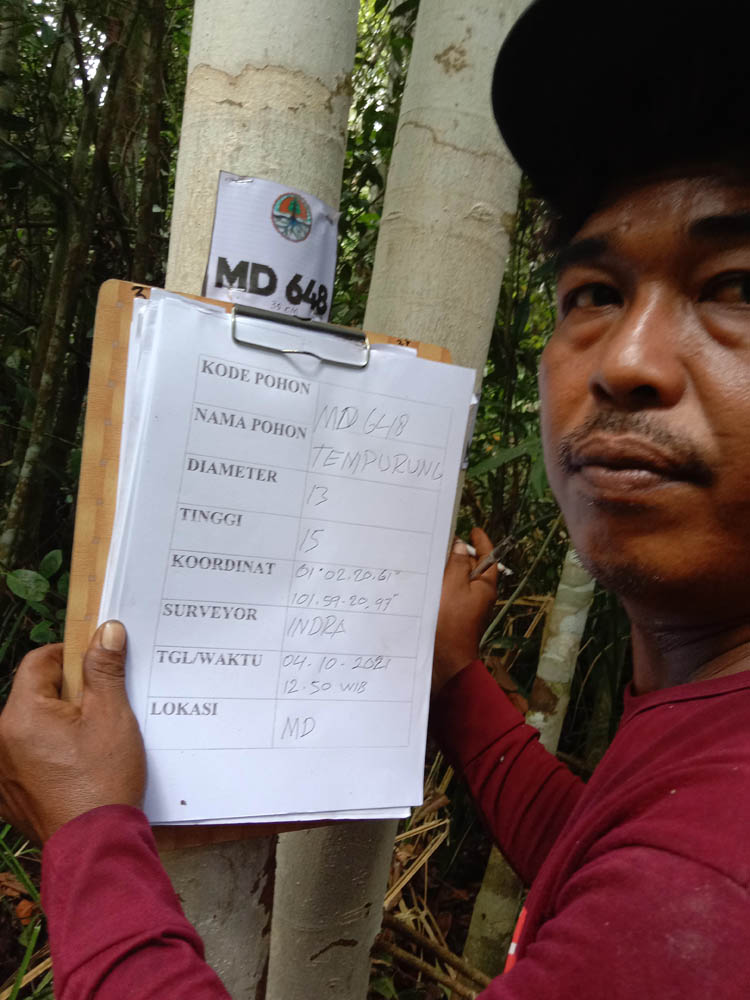 MD 648
35 cm
KODE POHON MD 648
NAMA POHON TEMPURUNG
DIAMETER 13
TINGGI 15
KOORDINAT 01°02.20.61"
101.59-20,97"
SURVEYOR INDRA
TGL/WAKTU 04-10-2021
12.50 WIB
LOKASI MD